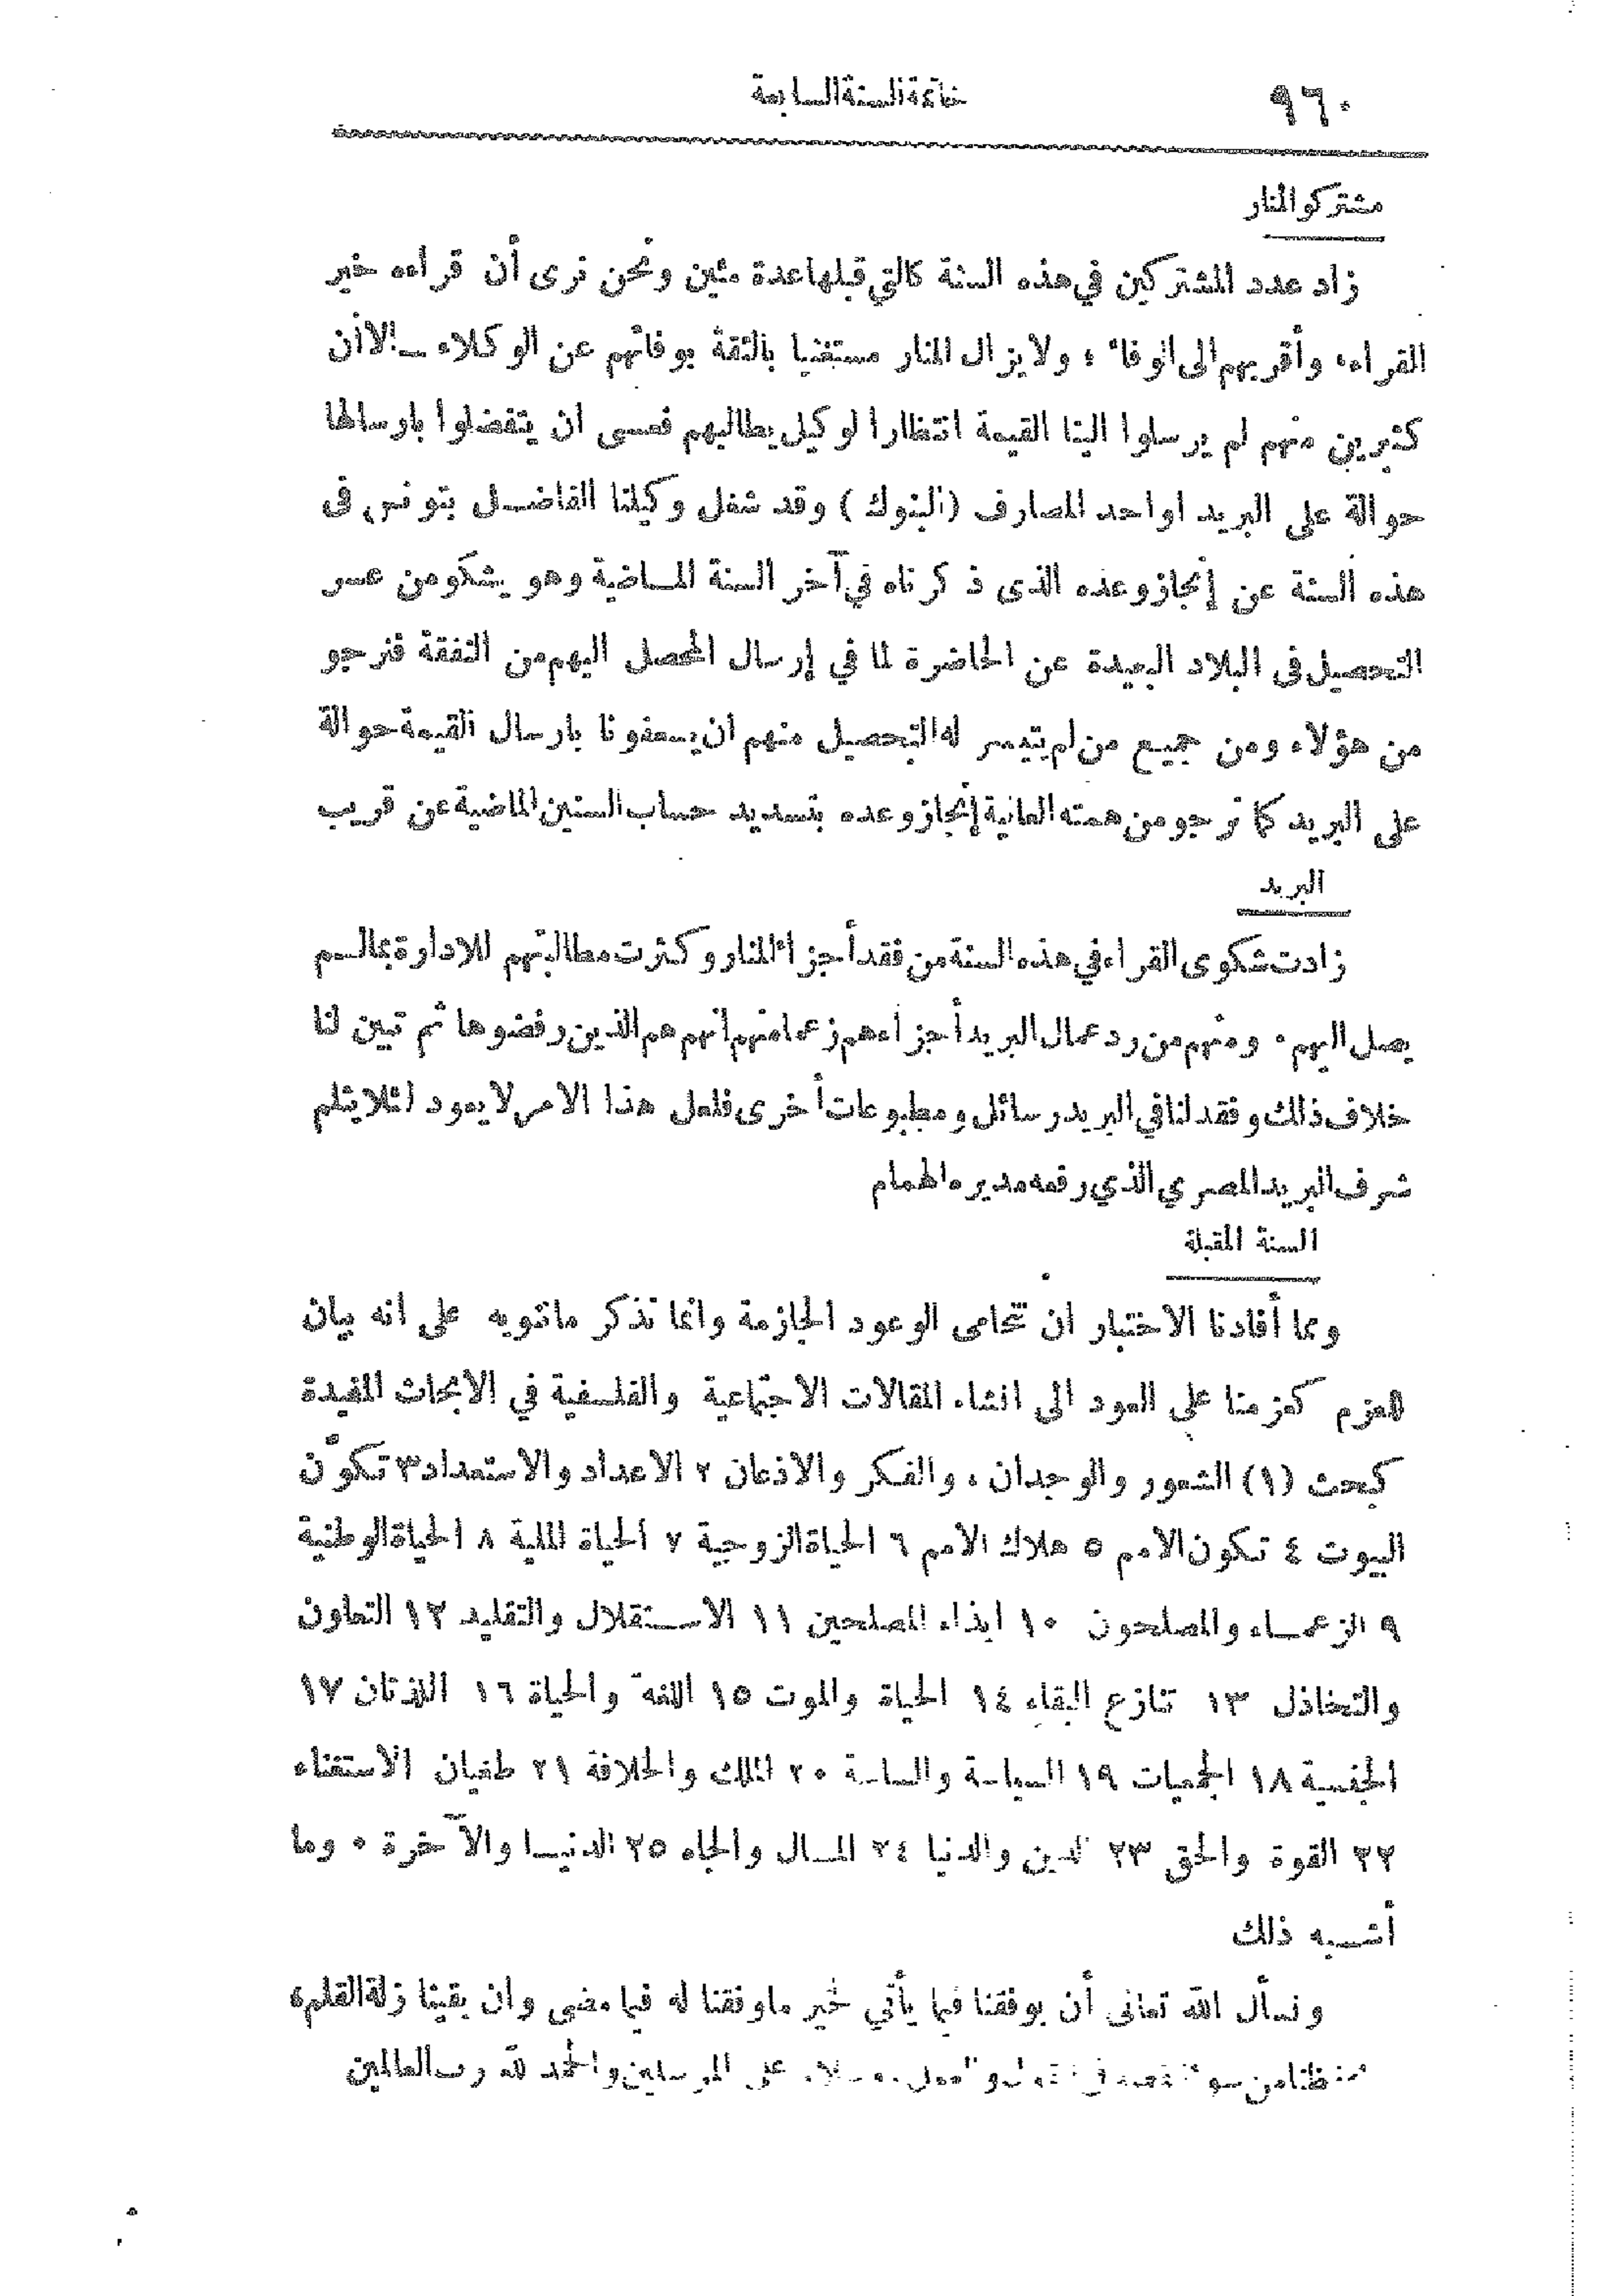 ٩٦٠
خاتمة السنة السابعة
مشتركو المنار
زاد عدد المشتركين في هذه السنة كالتي قبلها عدة مئين ونحن نرى أن قراءه خير
القراء وأقربهم الى الوفاء ؛ ولا يزال المنار مستغنيا بالثقة بوفائهم عن الوكلاء ــ الا أن
كثيرين منهم لم يرسلوا الينا القيمة انتظارا لوكيل يطالبهم فعسى ان يتفضلوا بارسالها
حوالة على البريد او احد المصارف (البنوك) وقد شغل وكيلنا الفاضل بتونس فى
هذه السنة عن إنجاز وعده الذى ذكرناه في آخر السنة الماضية وهو يشكو من عسر
التحصيل فى البلاد البعيدة عن الحاضرة لما في إرسال المحصل اليهم من النفقة فنرجو
من هؤلاء ومن جميع من لم يتيسر له التحصيل منهم ان يسعفونا بارسال القيمة حوالة
على البريد كما نرجو من همته العالية إنجاز وعده بتسديد حساب السنين الماضية عن قريب
البريد
زادت شكوى القراء في هذه السنة من فقد أجزاء المنار وكثرت مطالبتهم للادارة بما لم
يصل اليهم ٠ ومنهم من رد عمال البريد أجزاءهم زعما منهم انهم هم الذين رفضوها ثم تبين لنا
خلاف ذلك وفقد لنا في البريد رسائل ومطبوعات أخرى فلعل هذا الامر لا يعود لئلا يثلم
شرف البريد المصري الذي رفعه مديره الهمام
السنة المقبلة
ومما أفادنا الاختبار ان نتحامى الوعود الجازمة وانما نذكر ما ننويه على أنه بيان
للعزم كعزمنا على العود الى انشاء المقالات الاجتماعية والفلسفية في الابحاث المفيدة
كبحث (١) الشعور والوجدان ، والفكر والاذعان ٢ الاعداد والاستعداد ٣ تكوّن
البيوت ٤ تكون الامم ٥ هلاك الامم ٦ الحياة الزوجية ٧ الحياة الملية ٨ الحياة الوطنية
٩ الزعماء والمصلحون ١٠ ايذاء المصلحين ١١ الاستقلال والتقليد ١٢ التعاون
والتخاذل ١٣ تنازع البقاء ١٤ الحياة والموت ١٥ اللغة والحياة ١٦ اللذتان ١٧
الجنسية ١٨ الجمعيات ١٩ السياسة والساسة ٢٠ الملك والخلافة ٢١ طغيان الاستغناء
٢٢ القوة والحق ٢٣ الدين والدنيا ٢٤ المال والجاه ٢٥ الدنيا والآخرة ٠ وما
أشبه ذلك
ونسأل الله تعالى أن يوفقنا فيما يأتي لخير ما وفقنا له فيما مضى وان يقينا زلة القلم،
على المرسلين والحمد لله رب العالمين